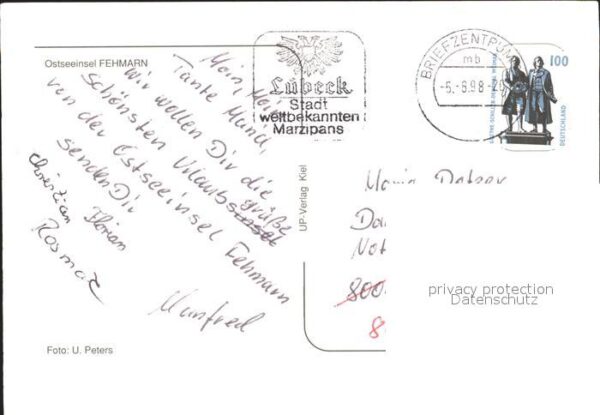 Ostseeinsel FEHMARN
Moin, Moin
Tante Maria,
wir wollen Dir die
schönsten Urlaubs grüße
von der Ostseeinsel Fehmarn
senden Dir
Christian Florian
Manfred
Foto: U. Peters
UP-Verlag Kiel
Lübeck
Stadt
weltbekannten
Marzipans
BRIEFZENTRUM
mb
-5.-8.98-20
100
DEUTSCHLAND
Maria
800
8
privacy protection
Datenschutz